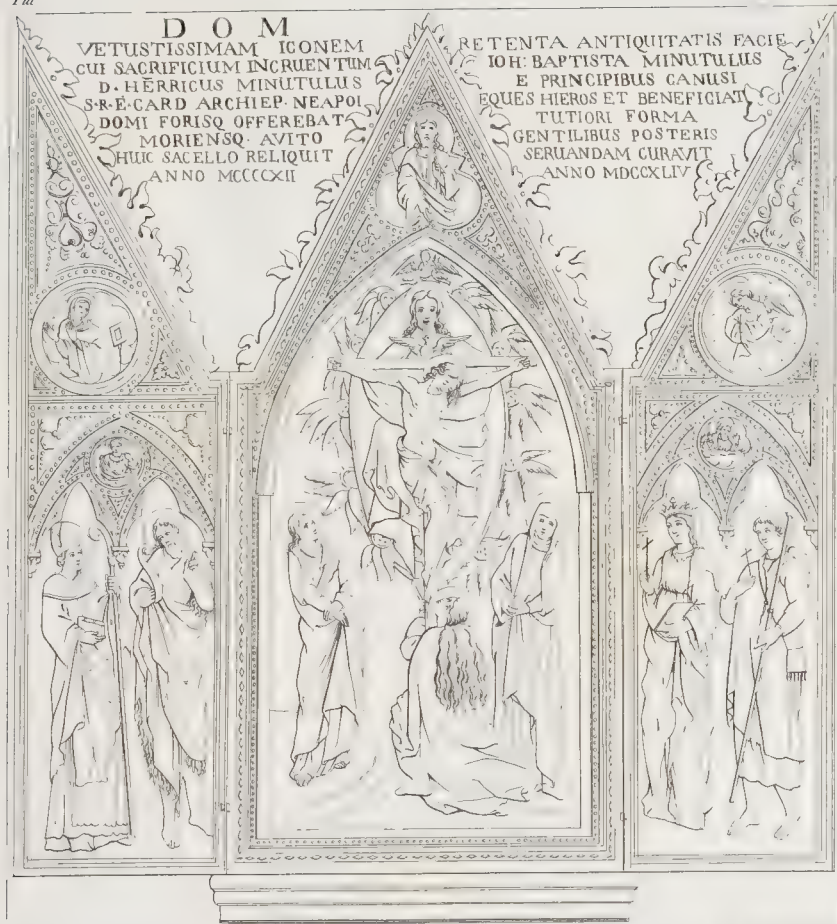 D O M
VETUSTISSIMAM ICONEM
CUI SACRIFICIUM INCRUENTUM
D. HĒRRICUS MINUTULUS
S·R·E·CARD ARCHIEP· NEAPOL
DOMI FORISQ OFFEREBAT
MORIENSQ· AVITO
HUIC SACELLO RELIQUIT
ANNO MCCCCXII
RETENTA ANTIQUITATIS FACIE
IOH: BAPTISTA MINUTULUS
E PRINCIPIBUS CANUSI
EQUES HIEROS ET BENEFICIAT
TUTIORI FORMA
GENTILIBUS POSTERIS
SERUANDAM CURAVIT
ANNO MDCCXLIV